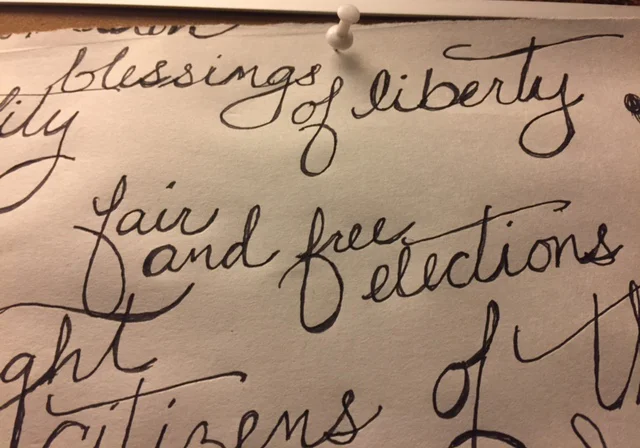 blessings
of liberty
fair
and free
elections
citizens of